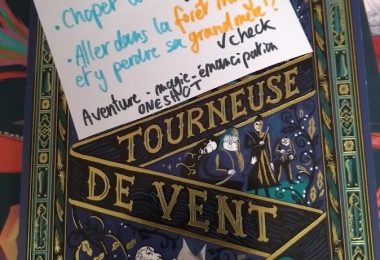 • Choper
• Aller dans la forêt
et y perdre sa grand mère !?
✓check
Aventure - magie - émancipation
ONESHOT
TOURNEUSE
DE VENT